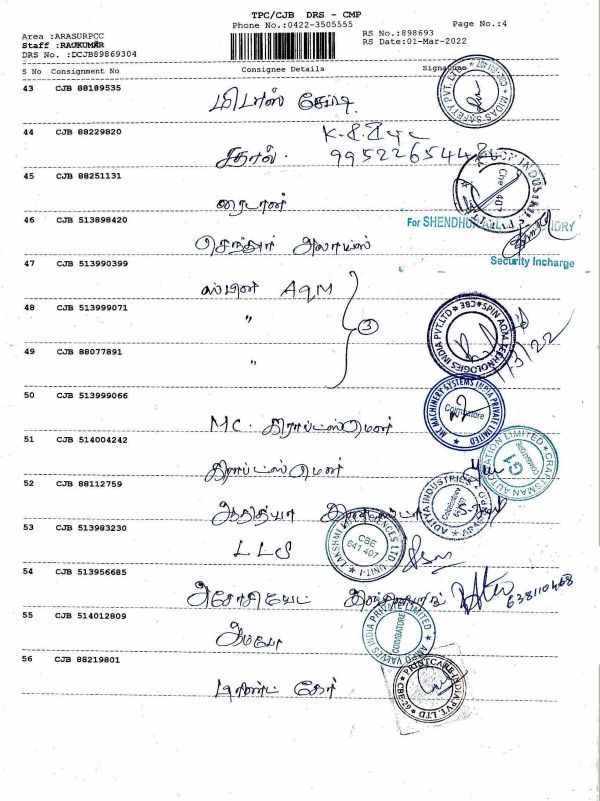 TPC/CJB DRS - CMP
Phone No.:0422-3505555
Page No.:4
Area :ARASURPCC
RS No.:898693
Staff :RAJKUMAR
RS Date:01-Mar-2022
DRS No. :DCJB89869304
S No Consignment No Consignee Details Signature
43 CJB 88189535
மிடாஸ் சேப்டி
MIDAS SAFETY PVT. LTD
44 CJB 88229820
சதர்ன்.
9952265448
45 CJB 88251131
ரைடான்
CBE 407
46 CJB 513898420
செந்தூர் அலாய்ஸ்
For SHENDHUR
Security Incharge
47 CJB 513990399
ஸ்பின் AQM
48 CJB 513999071
"
3
SPIN AQM TECHNOLOGIES INDIA PVT.LTD CBE
49 CJB 88077891
"
1/3/22
50 CJB 513999066
MC. கிராப்ட்ஸ்மென்
MC MACHINERY SYSTEMS INDIA PRIVATE LIMITED
Coimbatore
51 CJB 514004242
கிராப்ட்ஸ்மென்
CRAFTSMAN AUTOMATION LIMITED
COIMBATORE
G1
52 CJB 88112759
ஆதித்யா
ADITYA INDUSTRIES
Coimbatore
53 CJB 513983230
LLS
LAKSHMI LIFE SCIENCES LTD UNIT-I
CBE
641 407
54 CJB 513956685
அசோசியேட்
55 CJB 514012809
ஆம்போ
AMPO VALVES INDIA PRIVATE LIMITED
COIMBATORE
56 CJB 88219801
பிரிண்ட் கேர்
PRINTCARE INDIA PVT. LTD
CBE-62